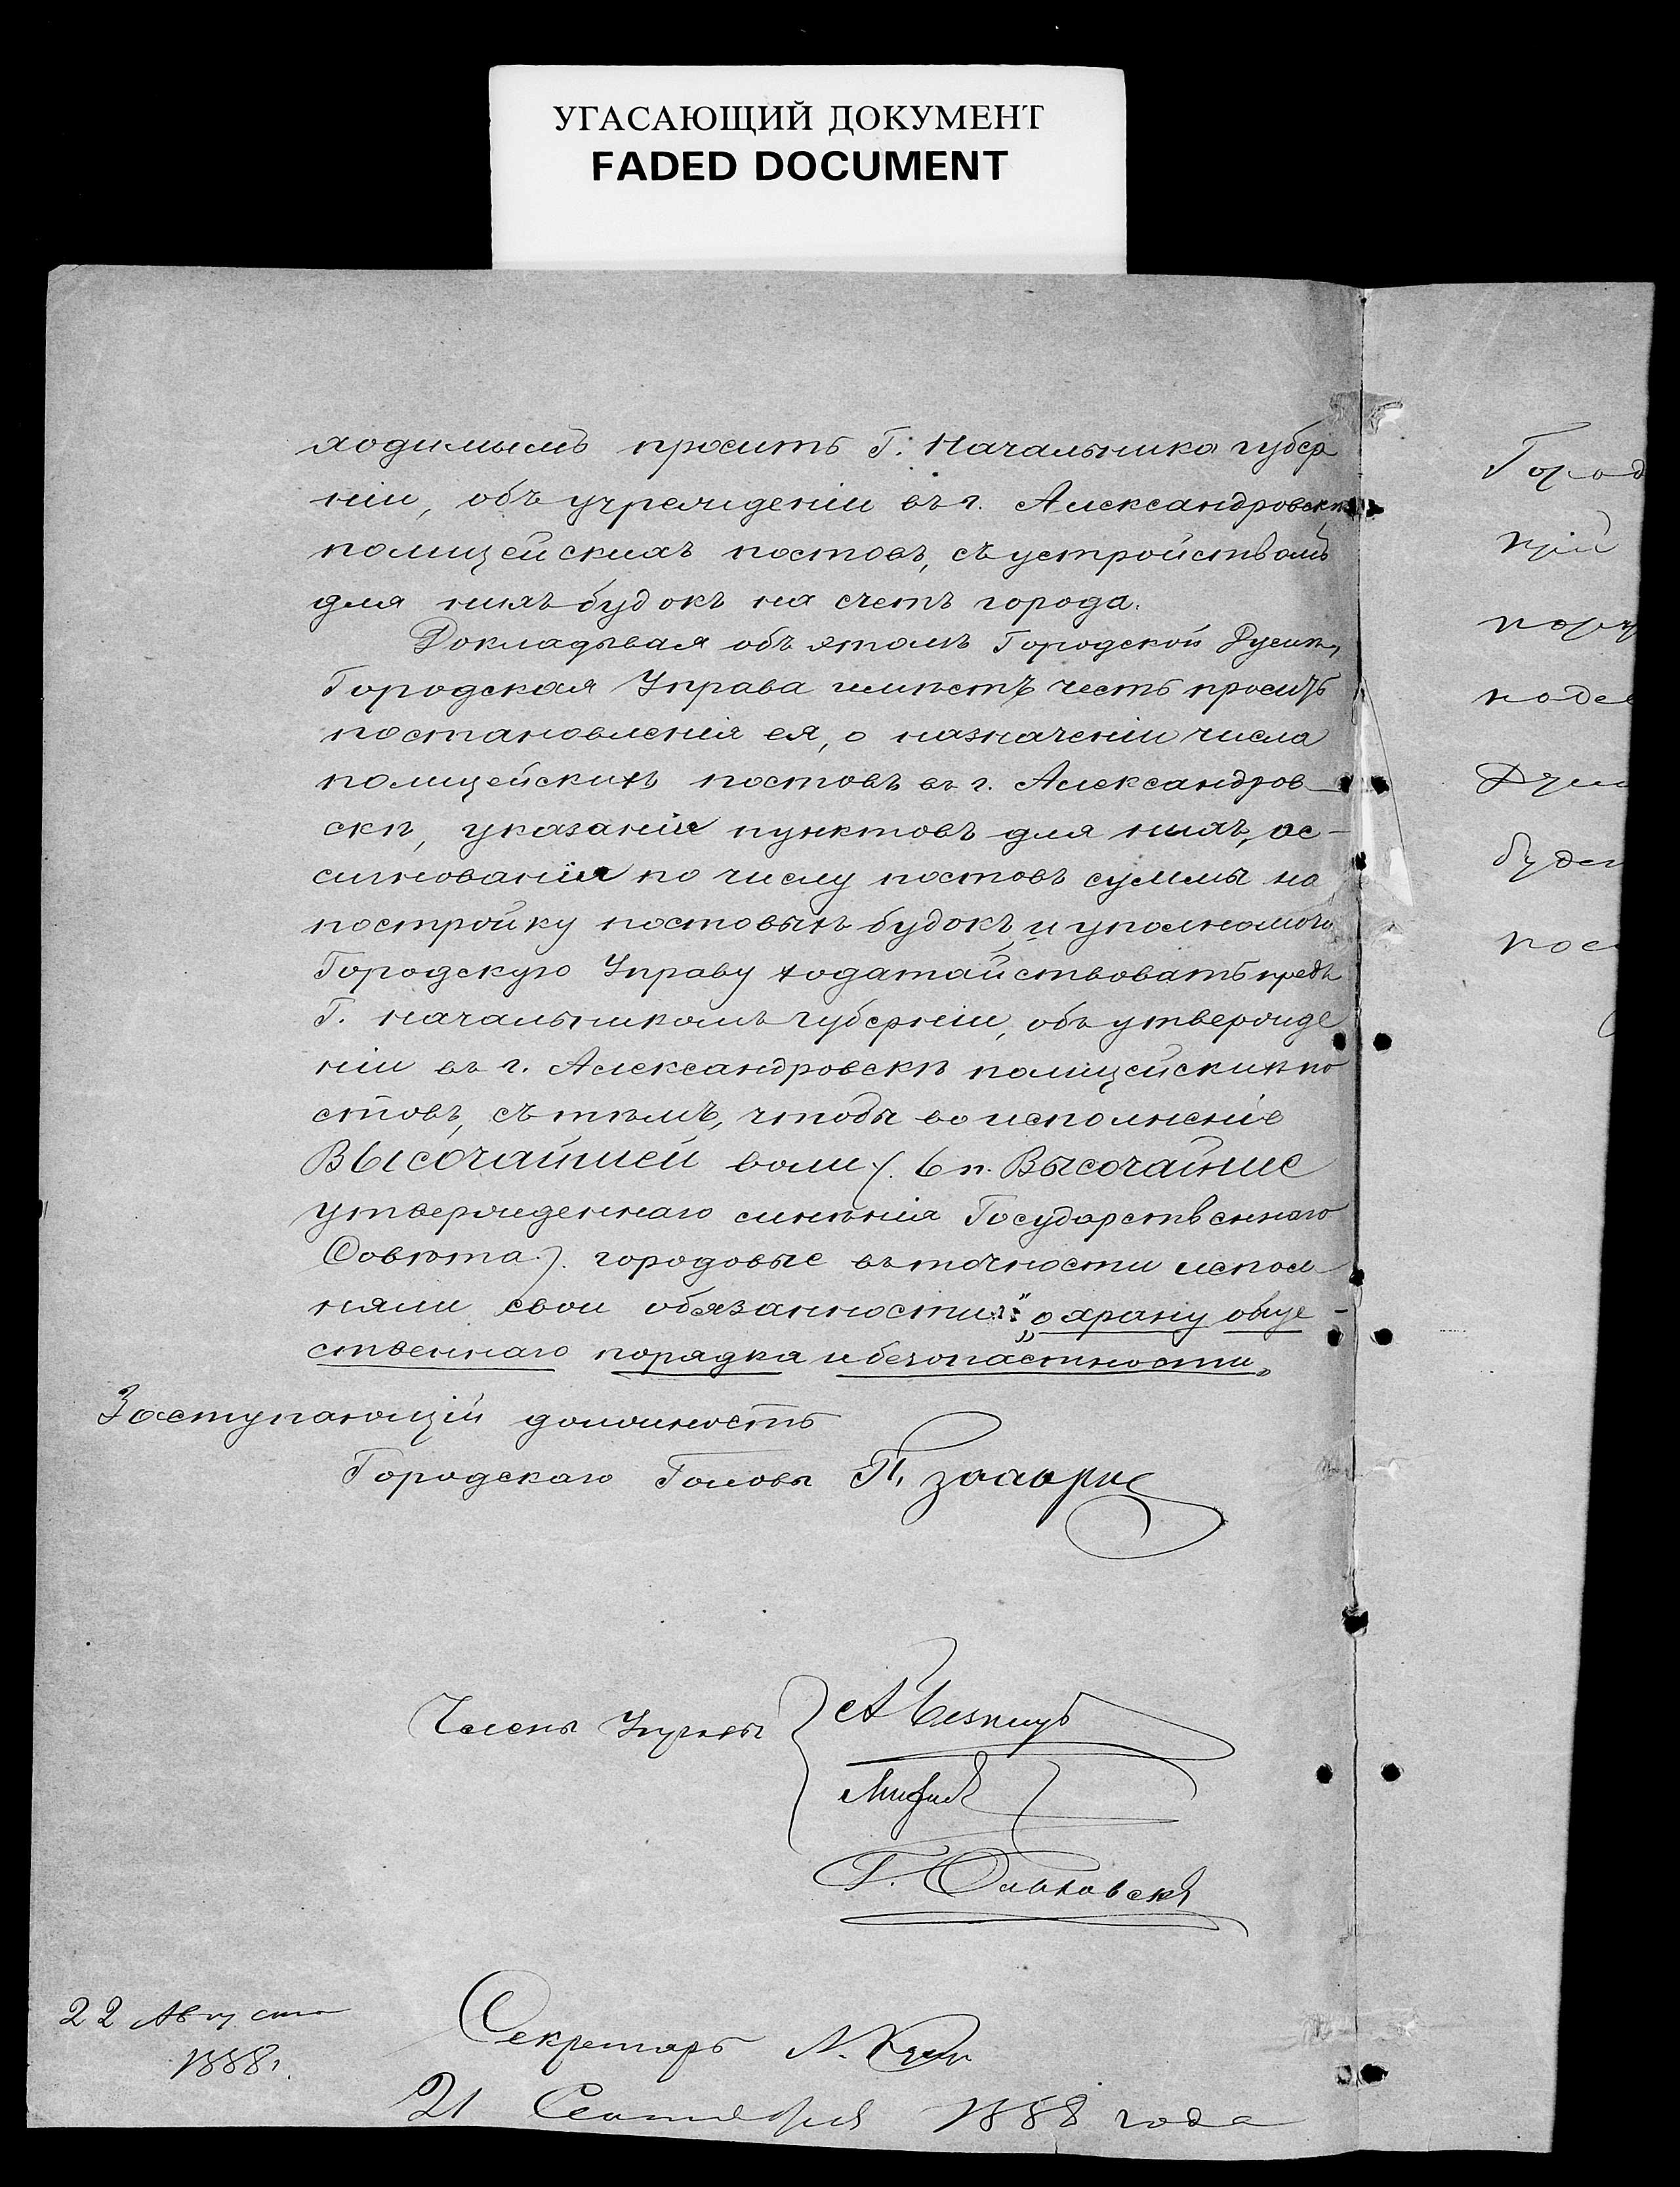 УГАСАЮЩИЙ ДОКУМЕНТ
FADED DOCUMENT
ходимымъ просить Г. Начальника губер
ніи, объ учрежденіи въ г. Александровскѣ
полицейскихъ постовъ, съ устройствомъ
для нихъ будокъ на счетъ города.
Докладывая объ этомъ Городской Думѣ,
Городская Управа имѣетъ честь просить
постановленія ея, о назначеніи числа
полицейскихъ постовъ въ г. Александров
скѣ, указанія пунктовъ для нихъ, ас-
сигнованія по числу постовъ суммы на
постройку постовыхъ будокъ и уполномочи
Городскую Управу ходатайствовать предъ
Г. начальникомъ губерніи, объ утвержде
ніи въ г. Александровскѣ полицейскихъ по
стовъ, съ тѣмъ, чтобы во исполненіе
ВЫСОЧАЙШЕЙ воли (. 6 п. ВЫСОЧАЙШЕ
утвержденнаго мнѣнія Государственнаго
Совѣта.). городовые въ точности испол
няли свои обязанности: „охрану обще-
ственнаго порядка и безопастности„
Заступающій должность
Городскаго Головы П.
Члены Управы
А
Г.
Секретарь Н.
22 Августа
1888г.
21 Сентября 1888 года
Город
ній
пору
подел
Дум
будет
пос